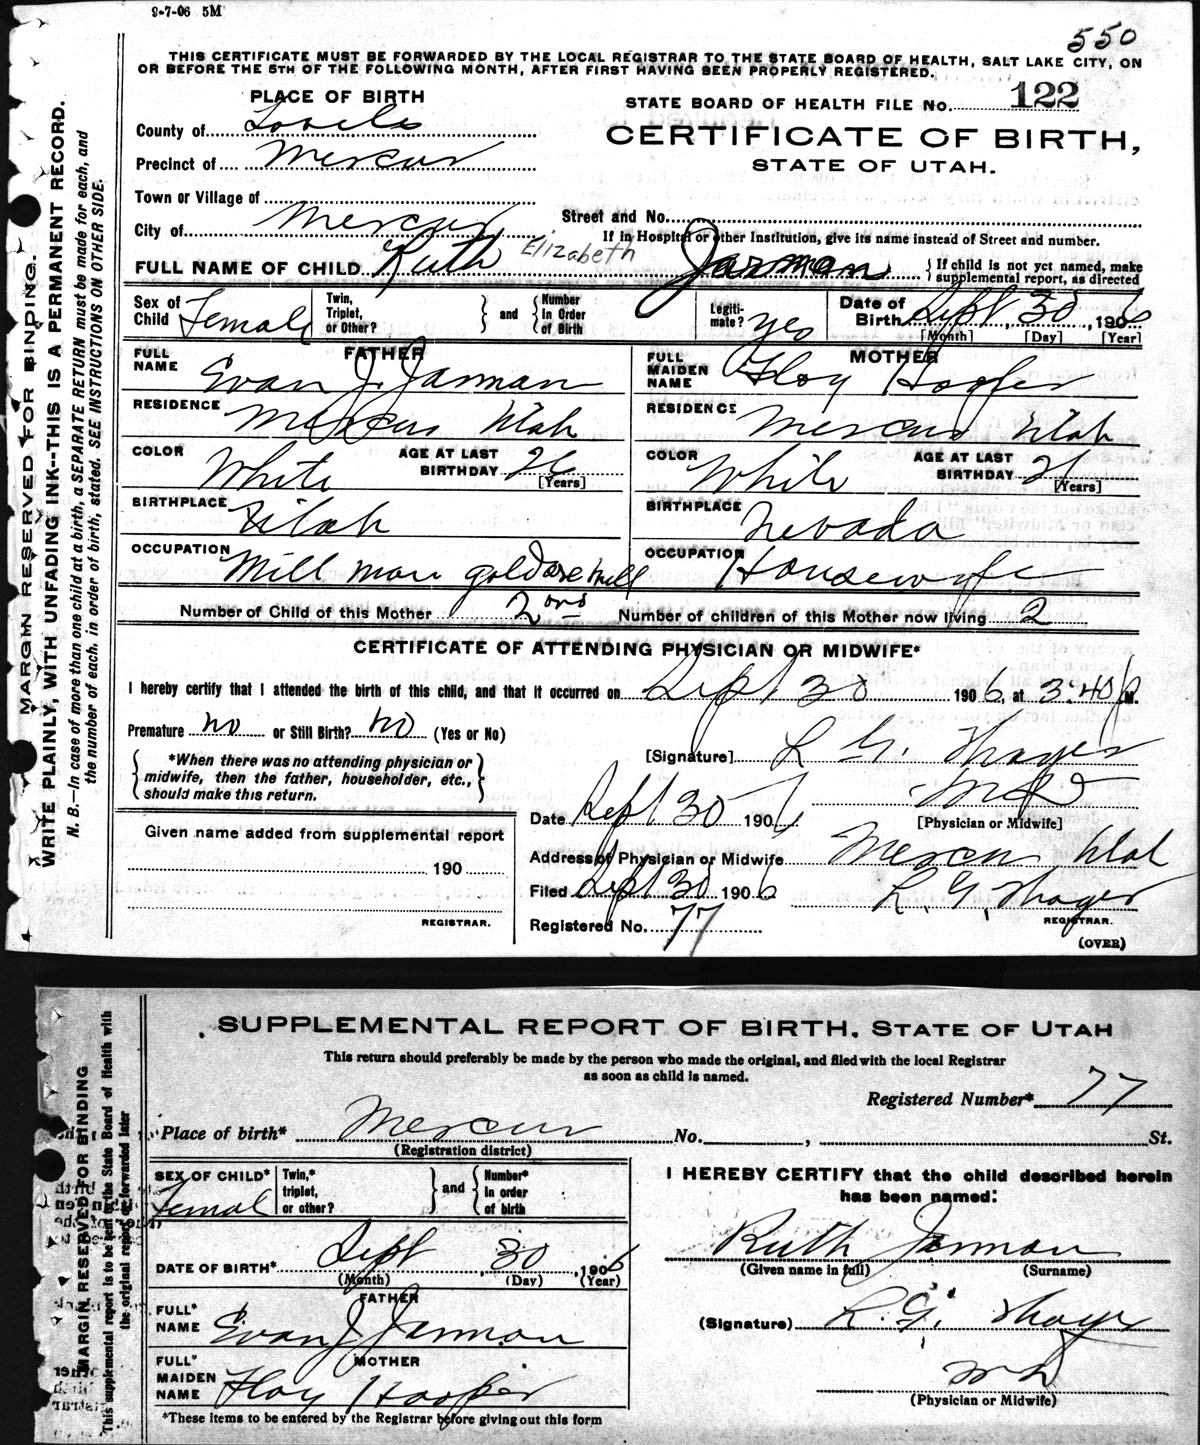 9-7-06 5M
550
THIS CERTIFICATE MUST BE FORWARDED BY THE LOCAL REGISTRAR TO THE STATE BOARD OF HEALTH, SALT LAKE CITY, ON
OR BEFORE THE 5TH OF THE FOLLOWING MONTH, AFTER FIRST HAVING BEEN PROPERLY REGISTERED.
MARGIN RESERVED FOR BINDING.
WRITE PLAINLY, WITH UNFADING INK--THIS IS A PERMANENT RECORD.
N. B.—In case of more than one child at a birth, a SEPARATE RETURN must be made for each, and
the number of each, in order of birth, stated. SEE INSTRUCTIONS ON OTHER SIDE.
PLACE OF BIRTH
County of Tooele
Precinct of Mercur
Town or Village of
City of Mercur
STATE BOARD OF HEALTH FILE No. 122
CERTIFICATE OF BIRTH,
STATE OF UTAH.
Street and No.
If in Hospital or other Institution, give its name instead of Street and number.
FULL NAME OF CHILD Ruth Elizabeth Jarman
If child is not yet named, make
supplemental report, as directed
Sex of Child Female
Twin, Triplet, or Other?
and
Number in Order of Birth
Legitimate? yes
Date of Birth Sept, 30, 1906
[Month] [Day] [Year]
FATHER
FULL NAME Evan J. Jarman
RESIDENCE Mercur Utah
COLOR White
AGE AT LAST BIRTHDAY 26
[Years]
BIRTHPLACE Utah
OCCUPATION Mill man gold ore mill
MOTHER
FULL MAIDEN NAME Floy Hooper
RESIDENCE Mercur Utah
COLOR White
AGE AT LAST BIRTHDAY 21
[Years]
BIRTHPLACE Nevada
OCCUPATION Housewife
Number of Child of this Mother 2nd Number of children of this Mother now living 2
CERTIFICATE OF ATTENDING PHYSICIAN OR MIDWIFE*
I hereby certify that I attended the birth of this child, and that it occurred on Sept 30 1906, at 3:40 P.M.
Premature no or Still Birth? no (Yes or No)
*When there was no attending physician or
midwife, then the father, householder, etc.,
should make this return.
[Signature] L G. Thayer
M D
[Physician or Midwife]
Date Sept 30 1906
Address of Physician or Midwife Mercur Utah
Filed Sept 30 1906 L. G. Thayer
REGISTRAR.
Registered No. 77
(OVER)
Given name added from supplemental report
190
REGISTRAR.
MARGIN RESERVED FOR BINDING
This supplemental report is to be sent to the State Board of Health with
the original report or forwarded later
SUPPLEMENTAL REPORT OF BIRTH, STATE OF UTAH
This return should preferably be made by the person who made the original, and filed with the local Registrar
as soon as child is named.
Registered Number* 77
Place of birth* Mercur No. , St.
(Registration district)
SEX OF CHILD* Female
Twin,* triplet, or other?
and
Number* in order of birth
DATE OF BIRTH* Sept, 30, 1906
(Month) (Day) (Year)
FATHER
FULL* NAME Evan J. Jarman
MOTHER
FULL* MAIDEN NAME Floy Hooper
*These items to be entered by the Registrar before giving out this form
I HEREBY CERTIFY that the child described herein
has been named:
Ruth Jarman
(Given name in full) (Surname)
(Signature) L. G. Thayer
M D
(Physician or Midwife)